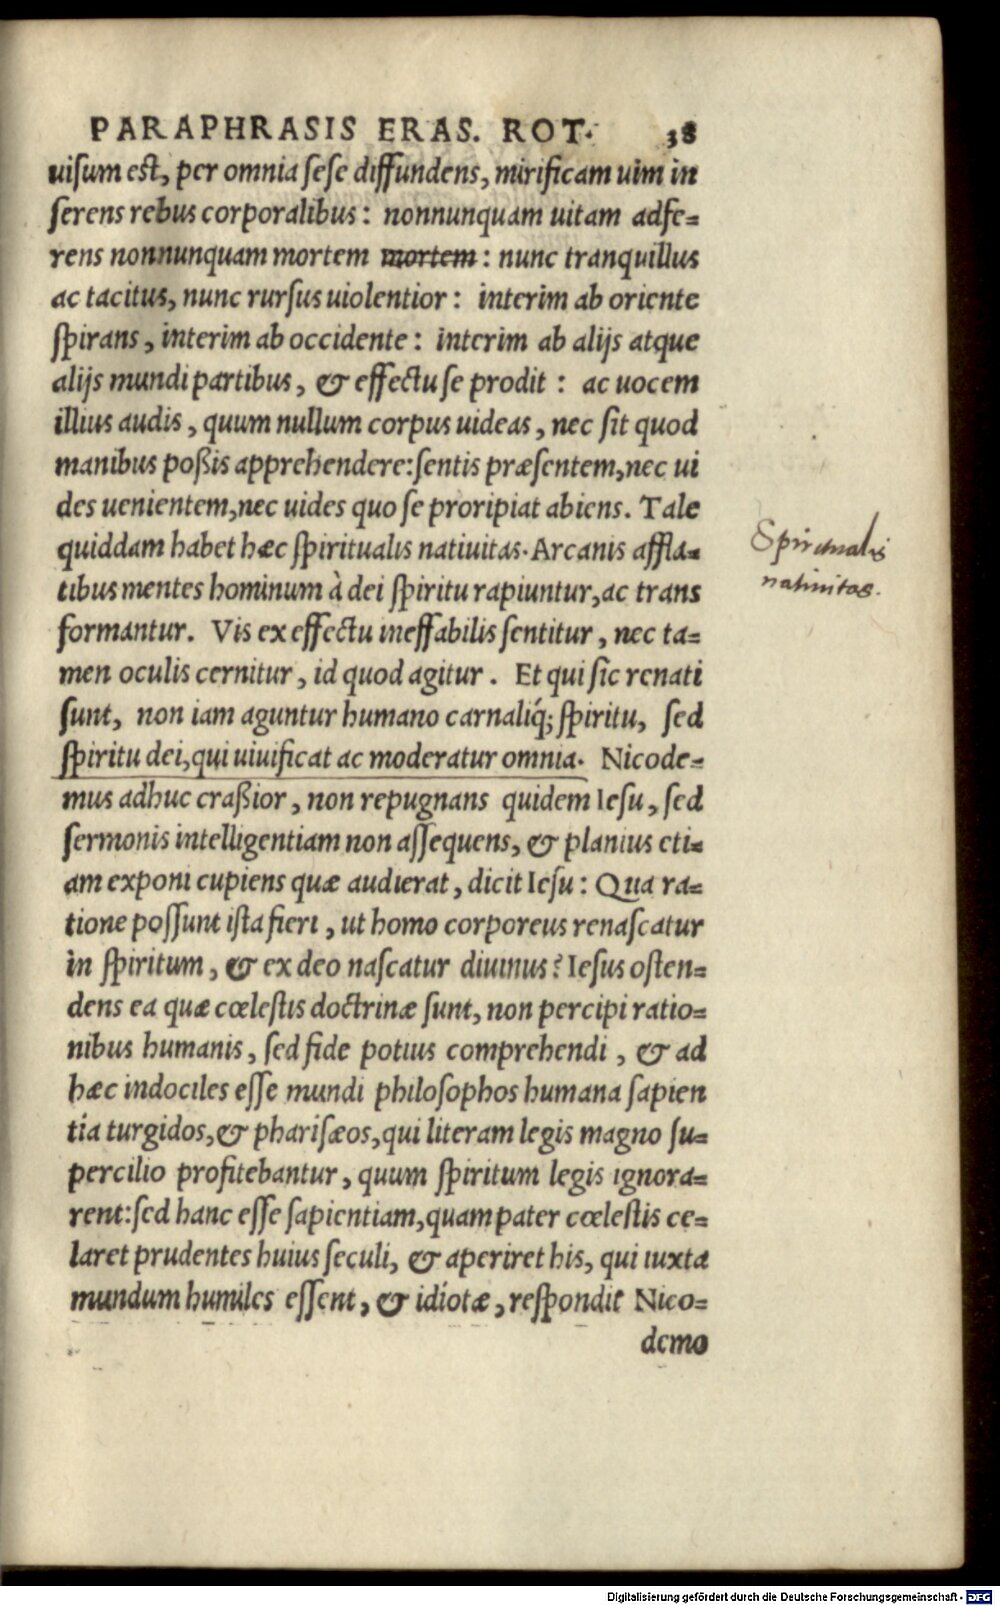 PARAPHRASIS ERAS. ROT. 38
uisum est, per omnia sese diffundens, mirificam uim in
serens rebus corporalibus: nonnunquam uitam adfe=
rens nonnunquam mortem mortem: nunc tranquillus
ac tacitus, nunc rursus uiolentior: interim ab oriente
spirans, interim ab occidente: interim ab alijs atque
alijs mundi partibus, & effectu se prodit: ac uocem
illius audis, quum nullum corpus uideas, nec sit quod
manibus poßis apprehendere: sentis præsentem, nec ui
des uenientem, nec uides quo se proripiat abiens. Tale
quiddam habet hæc spiritualis natiuitas. Arcanis affla=
tibus mentes hominum à dei spiritu rapiuntur, ac trans
formantur. Vis ex effectu ineffabilis sentitur, nec ta=
men oculis cernitur, id quod agitur. Et qui sic renati
sunt, non iam aguntur humano carnaliq́; spiritu, sed
spiritu dei, qui uiuificat ac moderatur omnia. Nicode=
mus adhuc craßior, non repugnans quidem Iesu, sed
sermonis intelligentiam non assequens, & planius eti=
am exponi cupiens quæ audierat, dicit Iesu: Qua ra=
tione possunt ista fieri, ut homo corporeus renascatur
in spiritum, & ex deo nascatur diuinus? Iesus osten=
dens ea quæ cœlestis doctrinæ sunt, non percipi ratio=
nibus humanis, sed fide potius comprehendi, & ad
hæc indociles esse mundi philosophos humana sapien
tia turgidos, & pharisæos, qui literam legis magno su=
percilio profitebantur, quum spiritum legis ignora=
rent: sed hanc esse sapientiam, quam pater cœlestis ce=
laret prudentes huius seculi, & aperiret his, qui iuxta
mundum humiles essent, & idiotæ, respondit Nico=
demo
Spiritualis
natiuitas.
Digitalisierung gefördert durch die Deutsche Forschungsgemeinschaft - DFG